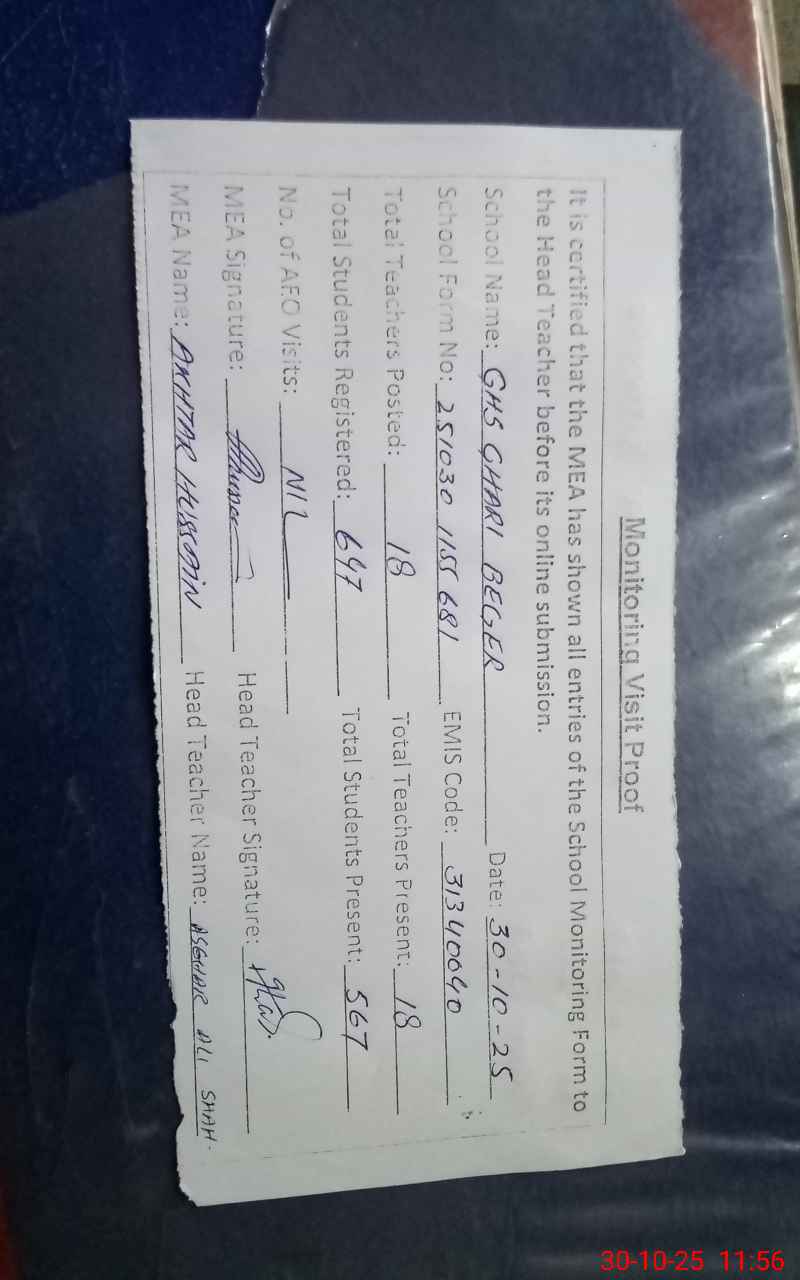 Monitoring Visit Proof
It is certified that the MEA has shown all entries of the School Monitoring Form to
the Head Teacher before its online submission.
School Name: GHS GHARI BEGER Date: 30-10-25
School Form No: 251030 1155 681 EMIS Code: 31340040
Total Teachers Posted: 18 Total Teachers Present: 18
Total Students Registered: 647 Total Students Present: 567
No. of AEO Visits: NIL
MEA Signature: Head Teacher Signature:
MEA Name: AKHTAR HUSSAIN Head Teacher Name: ASGHAR ALI SHAH.
30-10-25 11:56